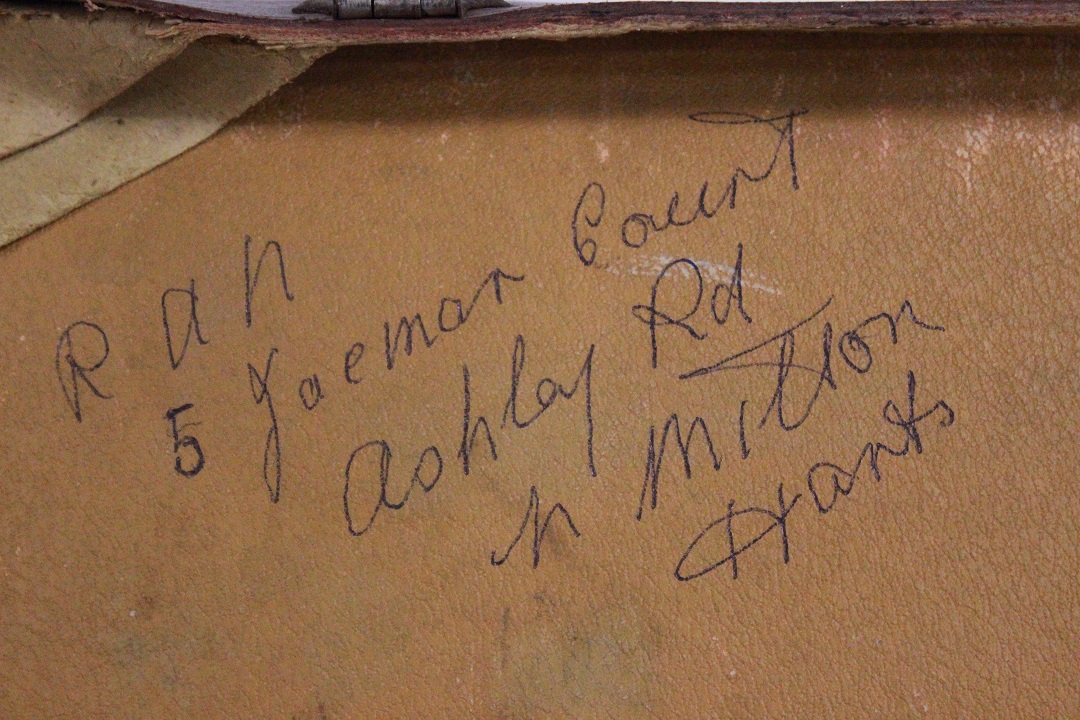 R A H
5 Yoeman Court
Ashley Rd
N Milton
Hants